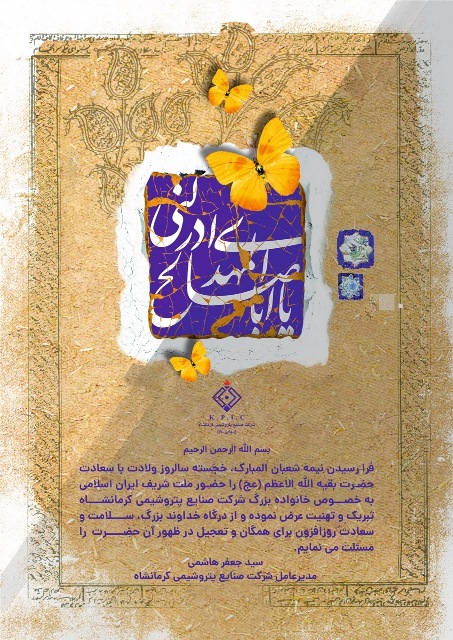 یا ابا صالح
المهدی ادرکنی
K.P.I.C
شرکت صنایع پتروشیمی کرمانشاه
بسم الله الرحمن الرحیم
فرا رسیدن نیمه شعبان المبارک، خجسته سالروز ولادت با سعادت
حضرت بقیه الله الاعظم (عج) را حضور ملت شریف ایران اسلامی
به خصوص خانواده بزرگ شرکت صنایع پتروشیمی کرمانشاه
تبریک و تهنیت عرض نموده و از درگاه خداوند بزرگ، سلامت و
سعادت روزافزون برای همگان و تعجیل در ظهور آن حضرت را
مسئلت می نمایم.
سید جعفر هاشمی
مدیرعامل شرکت صنایع پتروشیمی کرمانشاه